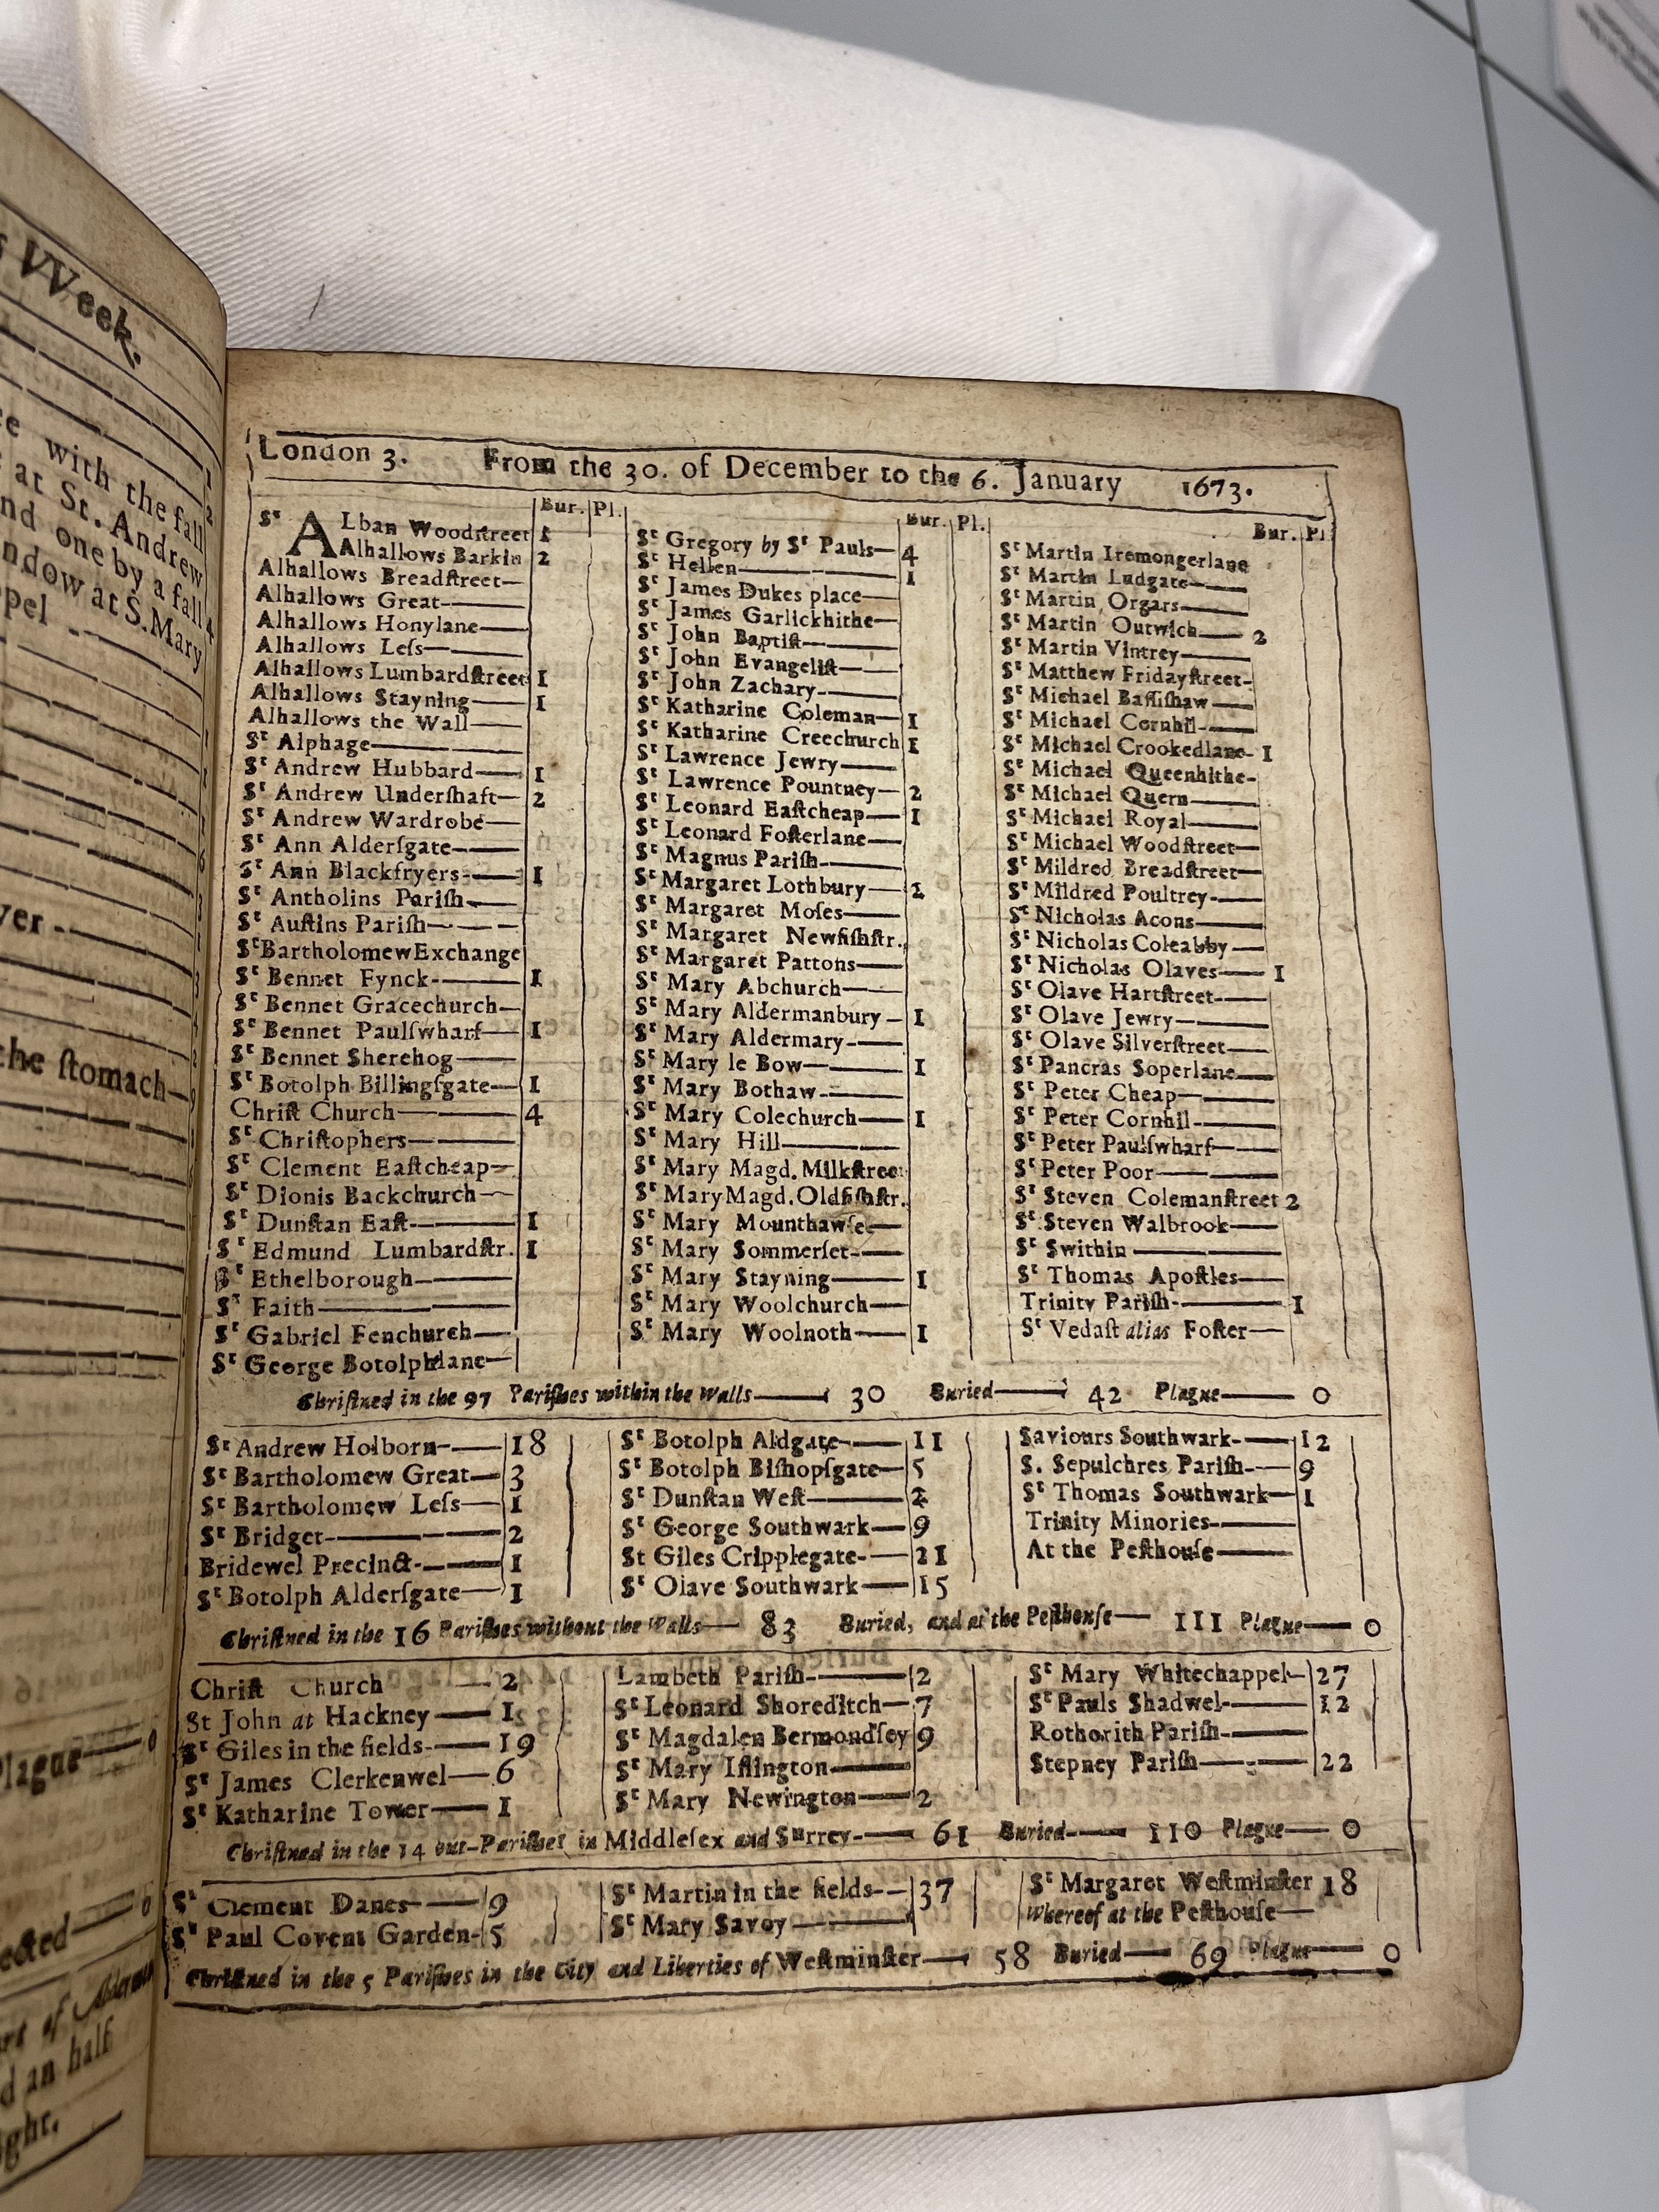 VVeek.
with the fall
at St. Andrew
one by a fall
at S. Mary
the ſtomach
Plague 0
an half
London 3. From the 30. of December to the 6. January 1673.
Bur. Pl.
Sᵗ ALban Woodſtreet 1
Alhallows Barkin 2
Alhallows Breadſtreet
Alhallows Great
Alhallows Honylane
Alhallows Leſs
Alhallows Lumbardſtreet 1
Alhallows Stayning 1
Alhallows the Wall
Sᵗ Alphage
Sᵗ Andrew Hubbard 1
Sᵗ Andrew Underſhaft 2
Sᵗ Andrew Wardrobe
Sᵗ Ann Alderſgate
Sᵗ Ann Blackfryers 1
Sᵗ Antholins Pariſh
Sᵗ Auſtins Pariſh
Sᵗ Bartholomew Exchange
Sᵗ Bennet Fynck 1
Sᵗ Bennet Gracechurch
Sᵗ Bennet Paulſwharf 1
Sᵗ Bennet Sherehog
Sᵗ Botolph Billingſgate 1
Chriſt Church 4
Sᵗ Chriſtophers
Sᵗ Clement Eaſtcheap
Sᵗ Dionis Backchurch
Sᵗ Dunſtan Eaſt 1
Sᵗ Edmund Lumbardſtr. 1
Sᵗ Ethelborough
Sᵗ Faith
Sᵗ Gabriel Fenchurch
Sᵗ George Botolphlane
Bur. Pl.
Sᵗ Gregory by Sᵗ Pauls 4
Sᵗ Hellen 1
Sᵗ James Dukes place
Sᵗ James Garlickhithe
Sᵗ John Baptiſt
Sᵗ John Evangeliſt
Sᵗ John Zachary
Sᵗ Katharine Coleman 1
Sᵗ Katharine Creechurch 1
Sᵗ Lawrence Jewry
Sᵗ Lawrence Pountney 2
Sᵗ Leonard Eaſtcheap 1
Sᵗ Leonard Foſterlane
Sᵗ Magnus Pariſh
Sᵗ Margaret Lothbury 1
Sᵗ Margaret Moſes
Sᵗ Margaret Newfiſhſtr.
Sᵗ Margaret Pattons
Sᵗ Mary Abchurch
Sᵗ Mary Aldermanbury 1
Sᵗ Mary Aldermary
Sᵗ Mary le Bow 1
Sᵗ Mary Bothaw
Sᵗ Mary Colechurch 1
Sᵗ Mary Hill
Sᵗ Mary Magd. Milkſtreet
Sᵗ Mary Magd. Oldfiſhſtr.
Sᵗ Mary Mounthawſe
Sᵗ Mary Sommerſet
Sᵗ Mary Stayning 1
Sᵗ Mary Woolchurch
Sᵗ Mary Woolnoth 1
Bur. Pl
Sᵗ Martin Iremongerlane
Sᵗ Martin Ludgate
Sᵗ Martin Orgars
Sᵗ Martin Outwich 2
Sᵗ Martin Vintrey
Sᵗ Matthew Fridayſtreet
Sᵗ Michael Baſſiſhaw
Sᵗ Michael Cornhil
Sᵗ Michael Crookedlane 1
Sᵗ Michael Queenhithe
Sᵗ Michael Quern
Sᵗ Michael Royal
Sᵗ Michael Woodſtreet
Sᵗ Mildred Breadſtreet
Sᵗ Mildred Poultrey
Sᵗ Nicholas Acons
Sᵗ Nicholas Coleabby
Sᵗ Nicholas Olaves 1
Sᵗ Olave Hartſtreet
Sᵗ Olave Jewry
Sᵗ Olave Silverſtreet
Sᵗ Pancras Soperlane
Sᵗ Peter Cheap
Sᵗ Peter Cornhil
Sᵗ Peter Paulſwharf
Sᵗ Peter Poor
Sᵗ Steven Colemanſtreet 2
Sᵗ Steven Walbrook
Sᵗ Swithin
Sᵗ Thomas Apoſtles
Trinity Pariſh 1
Sᵗ Vedaſt alias Foſter
Chriſtned in the 97 Pariſhes within the Walls 30 Buried 42 Plague 0
Sᵗ Andrew Holborn 18
Sᵗ Bartholomew Great 3
Sᵗ Bartholomew Leſs 1
Sᵗ Bridget 2
Bridewel Precinct 1
Sᵗ Botolph Alderſgate 1
Sᵗ Botolph Aldgate 11
Sᵗ Botolph Biſhopſgate 5
Sᵗ Dunſtan Weſt 2
Sᵗ George Southwark 9
St Giles Cripplegate 21
Sᵗ Olave Southwark 15
Saviours Southwark 12
S. Sepulchres Pariſh 9
Sᵗ Thomas Southwark 1
Trinity Minories
At the Peſthouſe
Chriſtned in the 16 Pariſhes without the Walls 83 Buried, and at the Peſthouſe 111 Plague 0
Chriſt Church 2
St John at Hackney 1
Sᵗ Giles in the fields 19
Sᵗ James Clerkenwel 6
Sᵗ Katharine Tower 1
Lambeth Pariſh 2
Sᵗ Leonard Shoreditch 7
Sᵗ Magdalen Bermondſey 9
Sᵗ Mary Iſlington
Sᵗ Mary Newington 2
Sᵗ Mary Whitechappel 27
Sᵗ Pauls Shadwel 12
Rothorith Pariſh
Stepney Pariſh 22
Chriſtned in the 14 out-Pariſhes in Middleſex and Surrey 61 Buried 110 Plague 0
Sᵗ Clement Danes 9
Sᵗ Paul Covent Garden 5
Sᵗ Martin in the fields 37
Sᵗ Mary Savoy
Sᵗ Margaret Weſtminſter 18
Whereof at the Peſthouſe
Chriſtned in the 5 Pariſhes in the City and Liberties of Weſtminſter 58 Buried 69 Plague 0